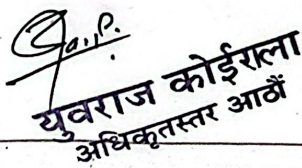 युवराज कोईराला
अधिकृतस्तर आठौं